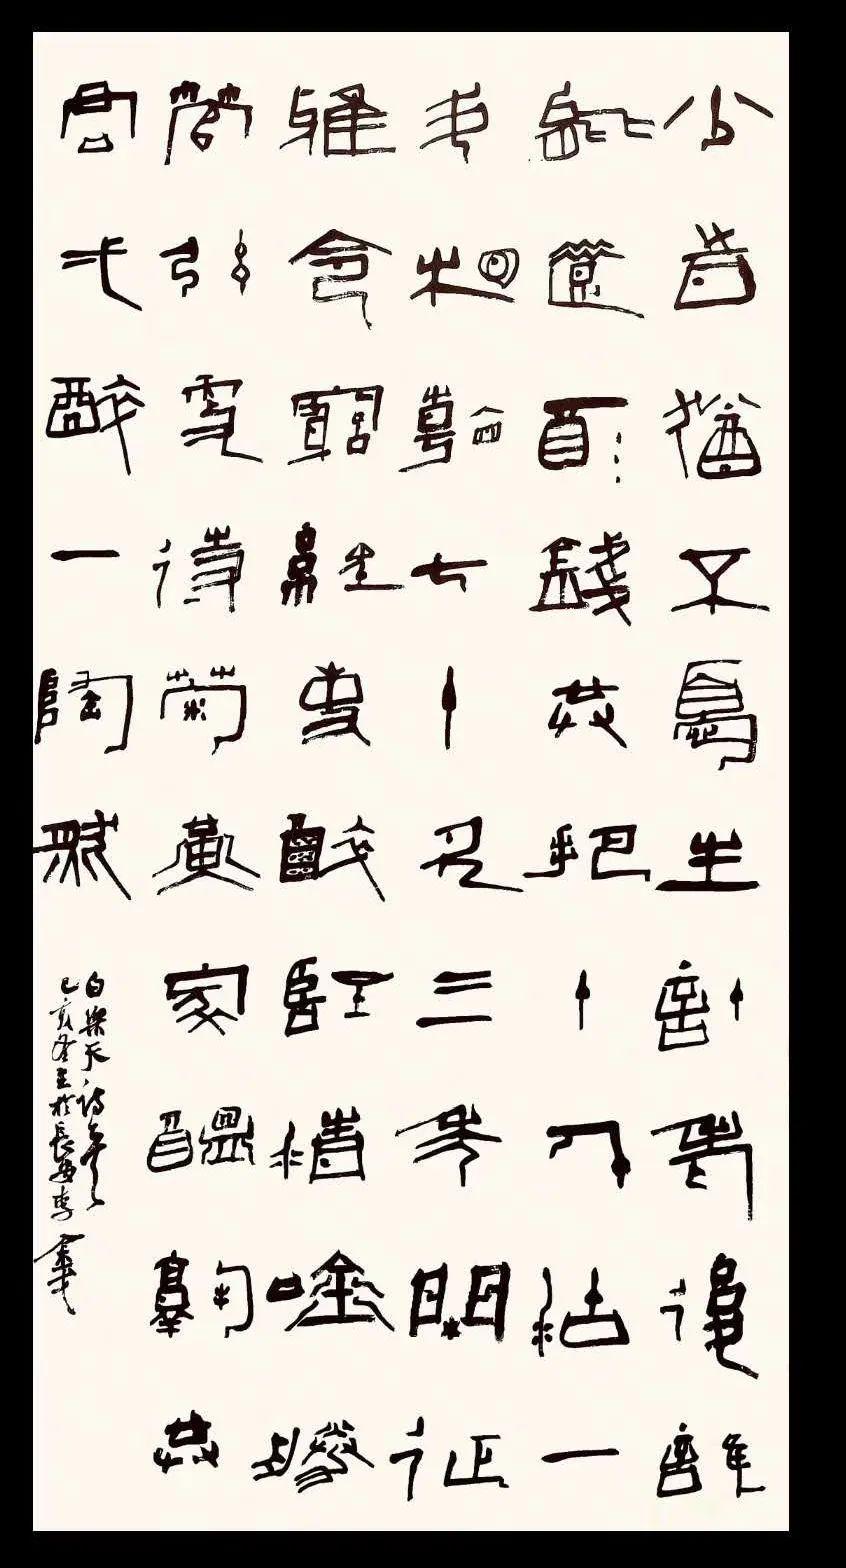 少時猶不憂生計老後誰
能惜酒錢共把十千沽一
斗相看七十欠三年閒征
雅令窮經史醉聽清吟勝
管弦更待菊黃家醞熟共
君一醉一陶然
白樂天詩
己亥冬至於長安李